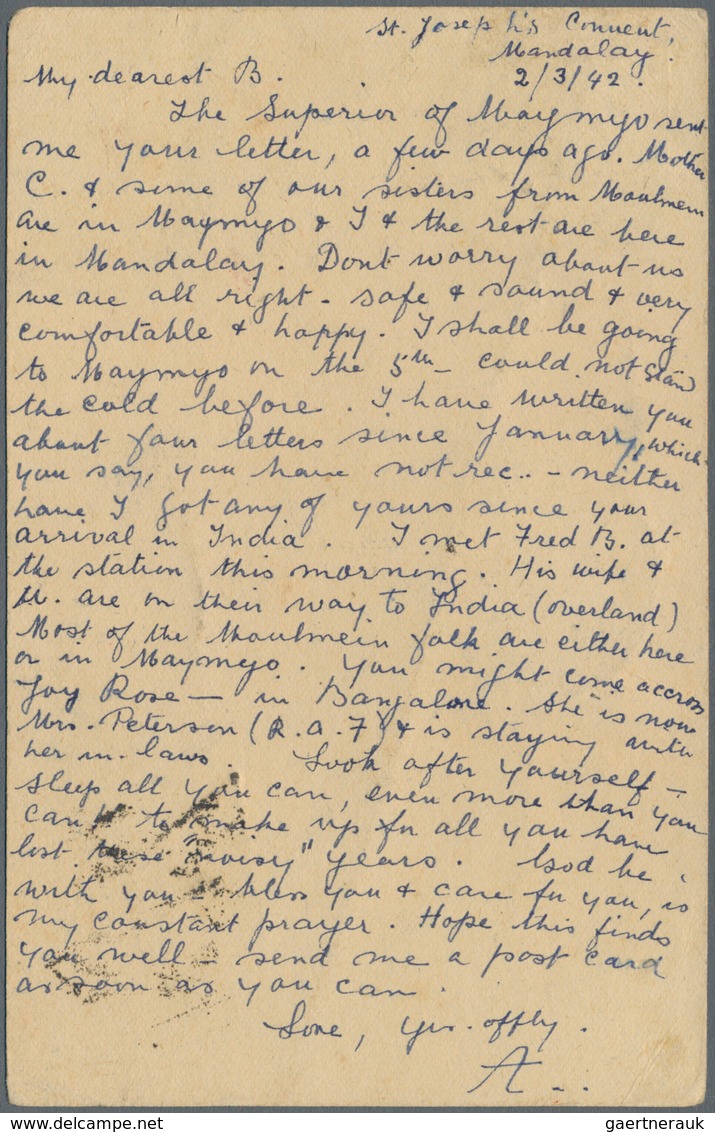 St. Joseph's Convent,
Mandalay.
2/3/42.
My dearest B.
The Superior of Maymyo sent
me your letter, a few days ago. Mother
C. & some of our sisters from Moulmein
are in Maymyo & I & the rest are here
in Mandalay. Dont worry about us
we are all right - safe & sound & very
comfortable & happy. I shall be going
to Maymyo on the 5th - could not stand
the cold before. I have written you
about four letters since January, which
you say, you have not rec.. - neither
have I got any of yours since your
arrival in India. I met Fred B. at
the station this morning. His wife &
M. are on their way to India (overland)
Most of the Moulmein folk are either here
or in Maymyo. You might come accross
Joy Rose - in Bangalore. She is now
Mrs. Peterson (R.A.F) & is staying with
her in-laws. Look after yourself -
sleep all you can, even more than you
can" to make up for all you have
lost these "noisy" years. God be
with you - bless you & care for you, is
my constant prayer. Hope this finds
you well - send me a post card
as soon as you can.
Love, yrs. affly.
A...
gaertnerauk